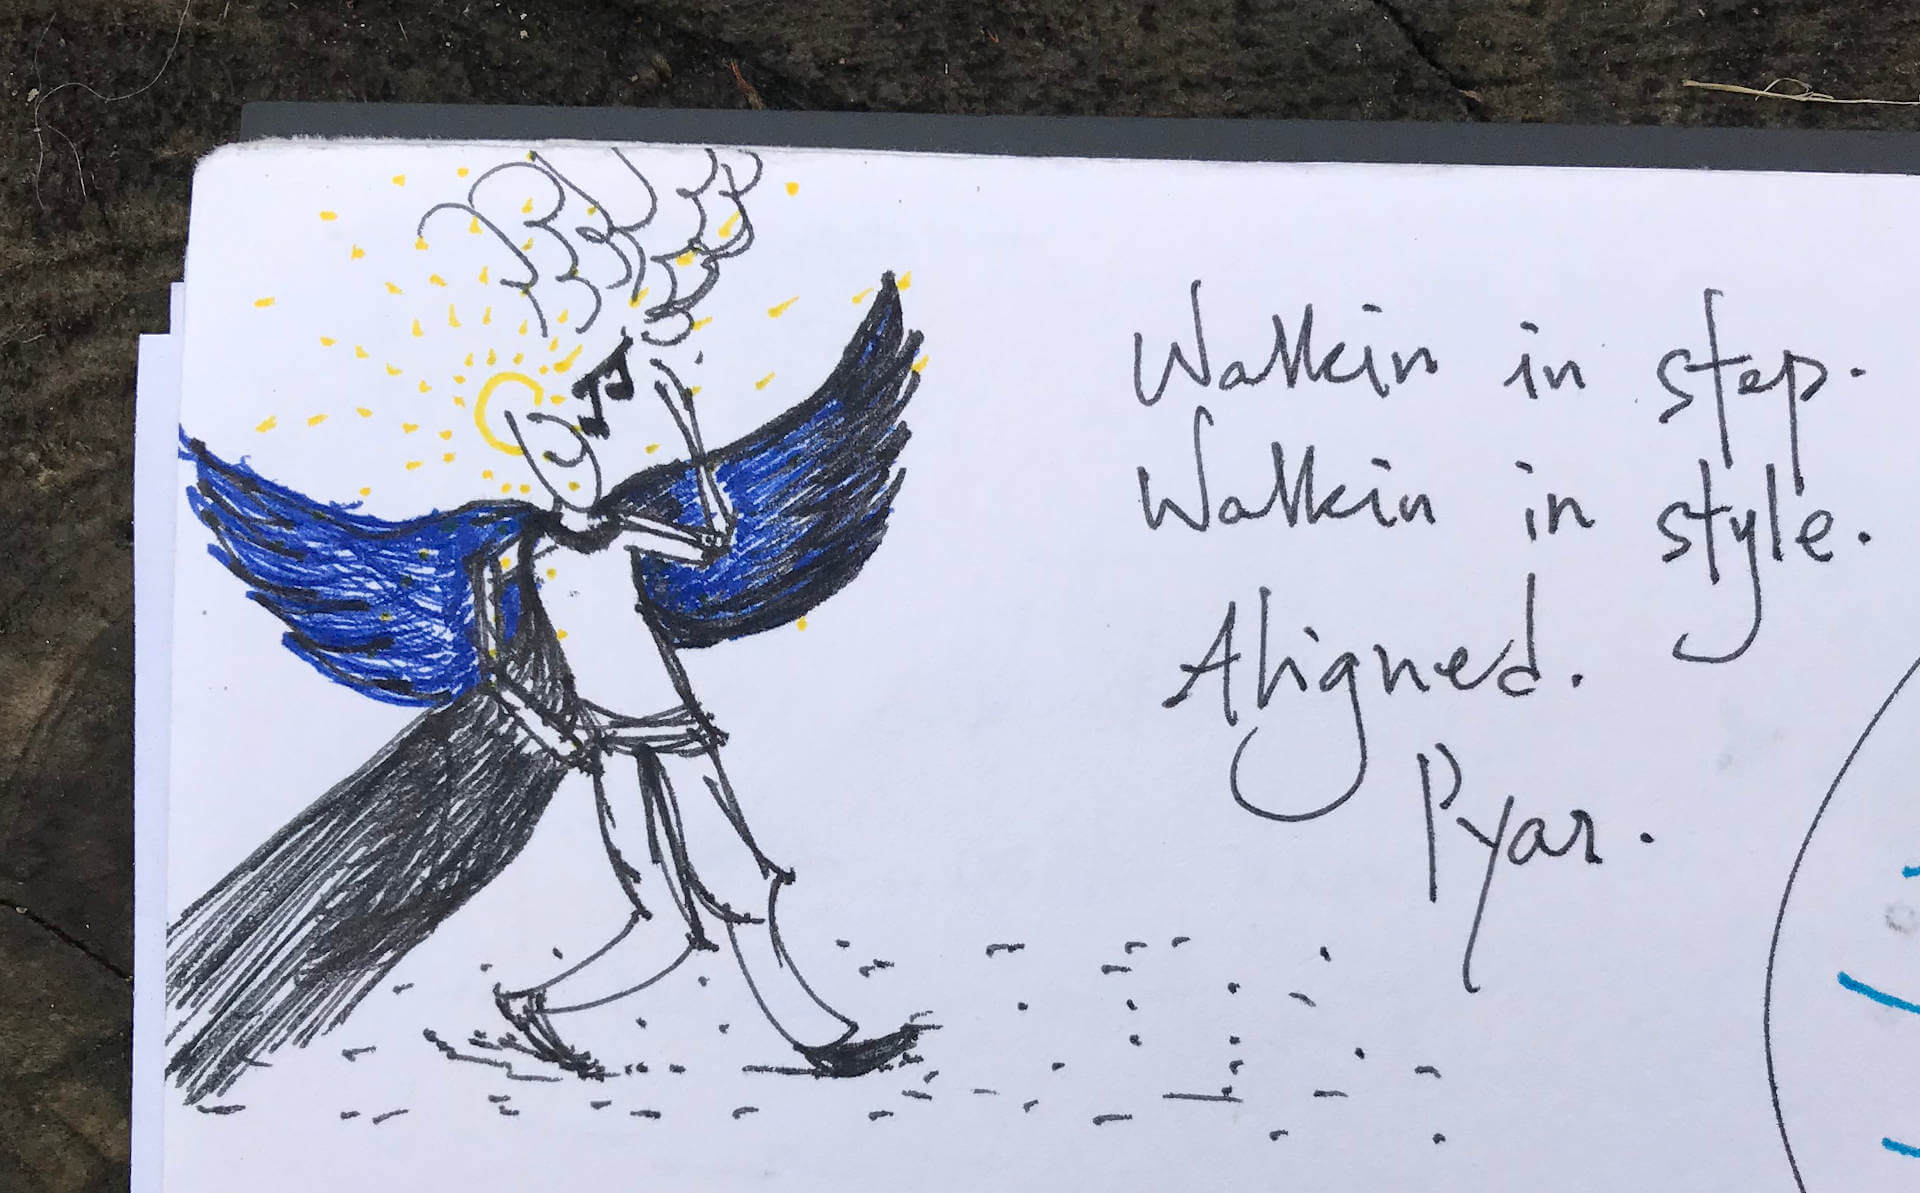 Walkin in step.
Walkin in style.
Aligned.
Pyar.